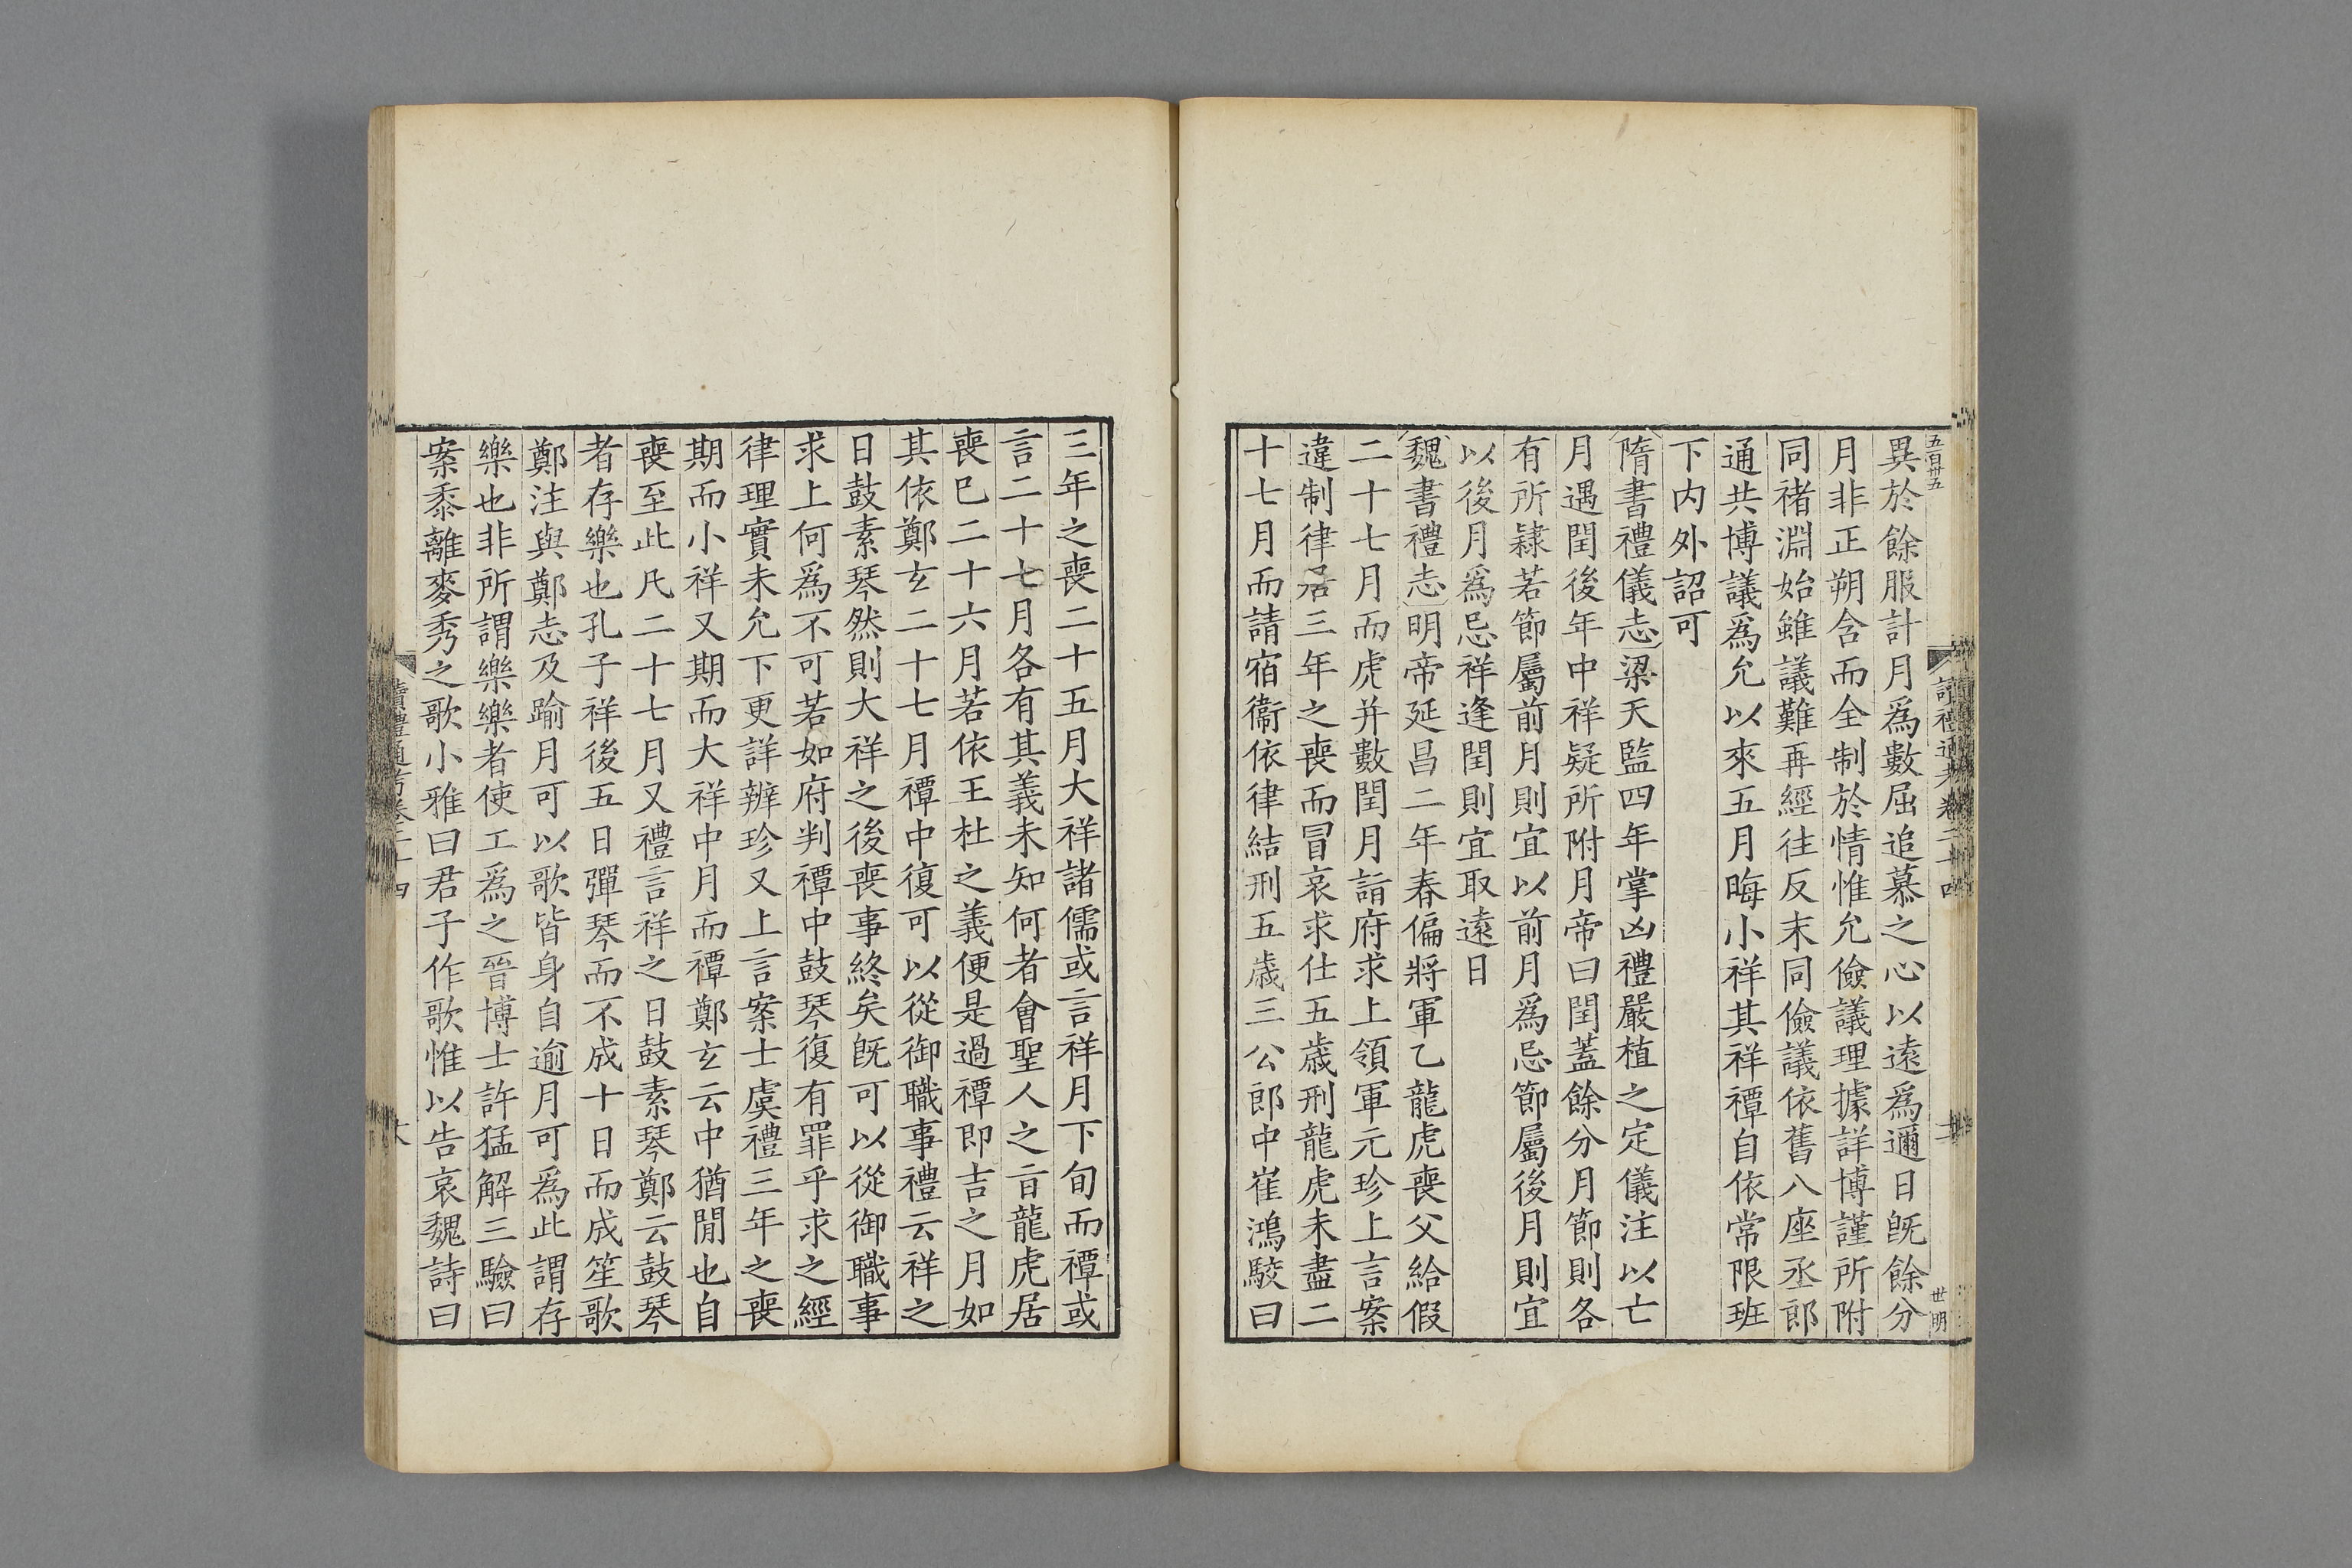 五百卅五
異於餘服計月爲數屈追慕之心以遠爲邇日既餘分
月非正朔含而全制於情惟允儉議理據詳博謹所附
同禇淵始雖議難再經往反末同儉議依舊八座丞郎
通共博議爲允以來五月晦小祥其祥禫自依常限班
下内外詔可
隋書禮儀志梁天監四年掌凶禮嚴植之定儀注以亡
月遇閏後年中祥疑所附月帝曰閏蓋餘分月節則各
有所隷若節屬前月則宜以前月爲忌節屬後月則宜
以後月爲忌祥逢閏則宜取遠日
魏書禮志明帝延昌二年春偏將軍乙龍虎喪父給假
二十七月而虎并數閏月詣府求上領軍元珍上言案
違制律居三年之喪而冒哀求仕五歲刑龍虎未盡二
十七月而請宿衞依律結刑五歲三公郎中崔鴻駮曰
讀禮通考卷二十四
世明
三年之喪二十五月大祥諸儒或言祥月下旬而禫或
言二十七月各有其義未知何者會聖人之旨龍虎居
喪已二十六月若依王杜之義便是過禫即吉之月如
其依鄭玄二十七月禫中復可以從御職事禮云祥之
日鼓素琴然則大祥之後喪事終矣既可以從御職事
求上何爲不可若如府判禫中鼓琴復有罪乎求之經
律理實未允下更詳辨珍又上言案士虞禮三年之喪
期而小祥又期而大祥中月而禫鄭玄云中猶閒也自
喪至此凡二十七月又禮言祥之日鼓素琴鄭云鼓琴
者存樂也孔子祥後五日彈琴而不成十日而成笙歌
鄭注與鄭志及踰月可以歌皆身自逾月可爲此謂存
樂也非所謂樂樂者使工爲之晉博士許猛解三驗曰
案黍離麥秀之歌小雅曰君子作歌惟以告哀魏詩曰
讀禮通考卷二十四